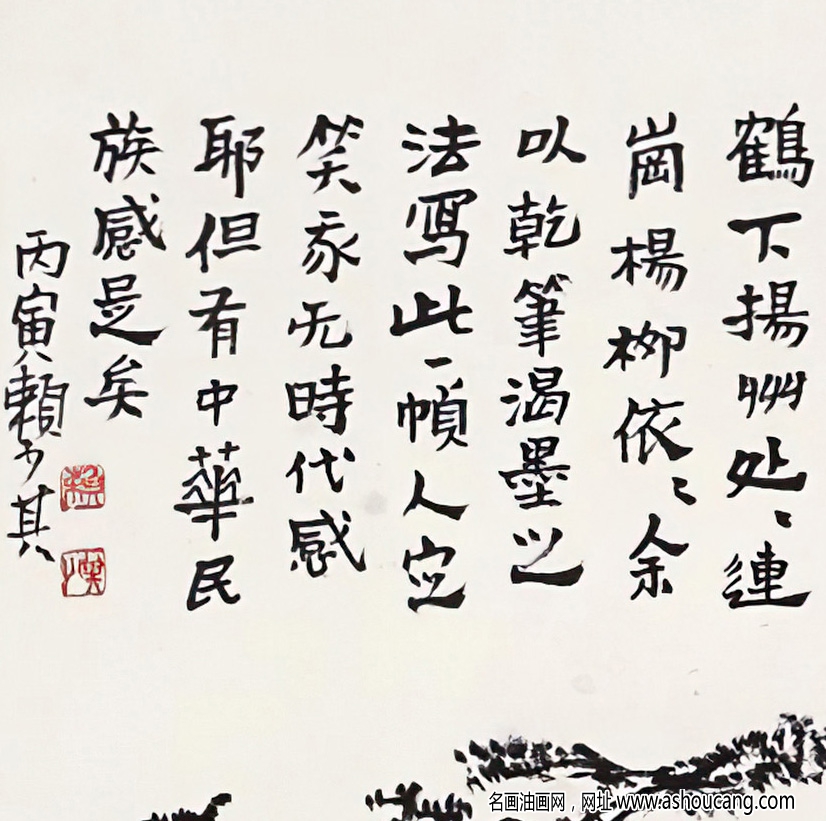 鶴下揚州处〻連
崗楊柳依〻余
以乾筆渴墨之
法寫此一幀人定
笑我无時代感
耶但有中華民
族感是矣
丙寅賴少其
名画油画网，网址 www.ashoucang.com